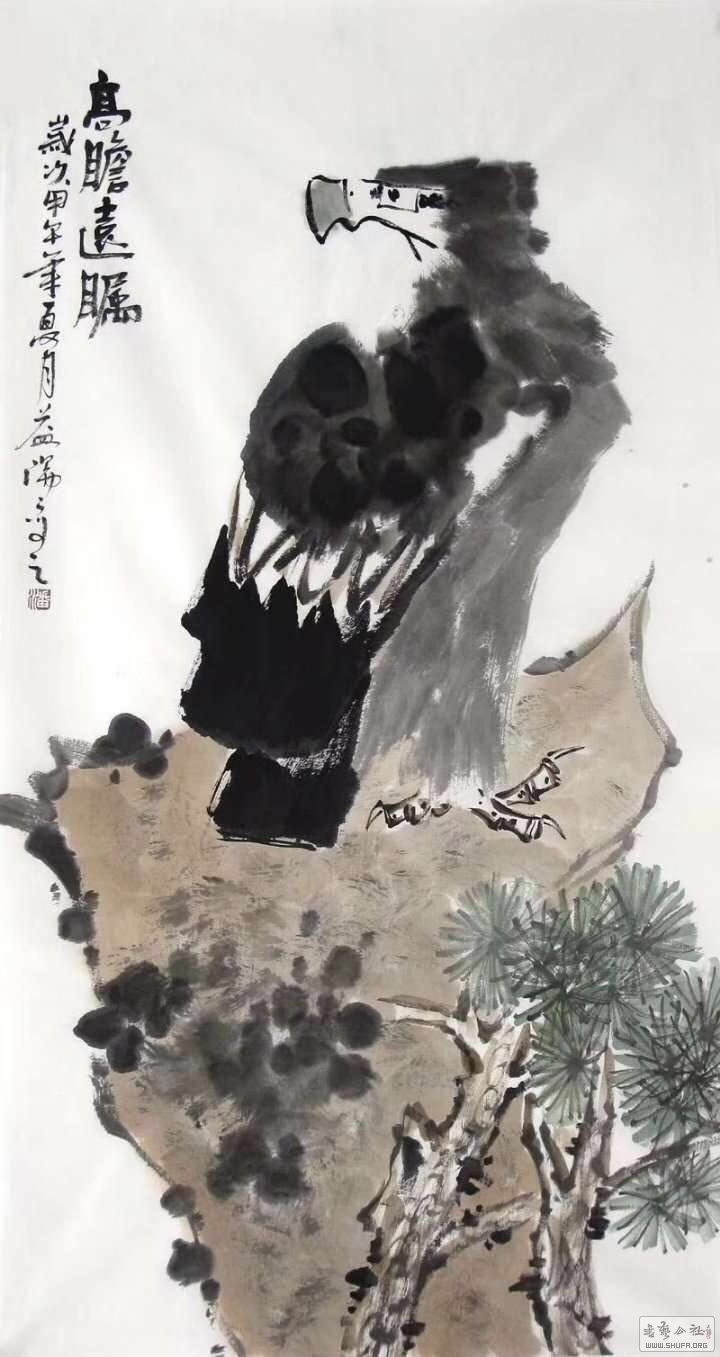 高瞻遠瞩
歲次甲午年夏月益陽写之
潘
書藝公社
WWW.SHUFA.ORG